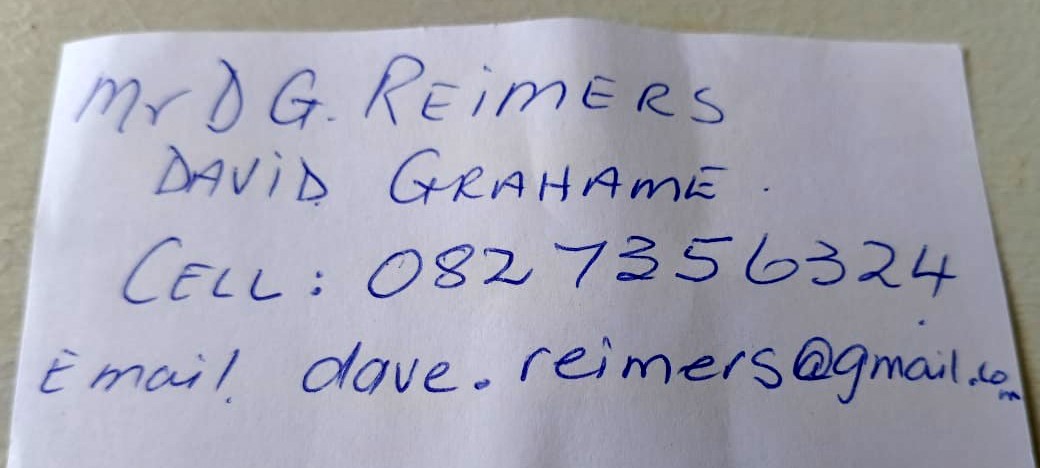 Mr D G. REIMERS
DAVID GRAHAME.
CELL: 082 7356324
Email dave.reimers@gmail.com